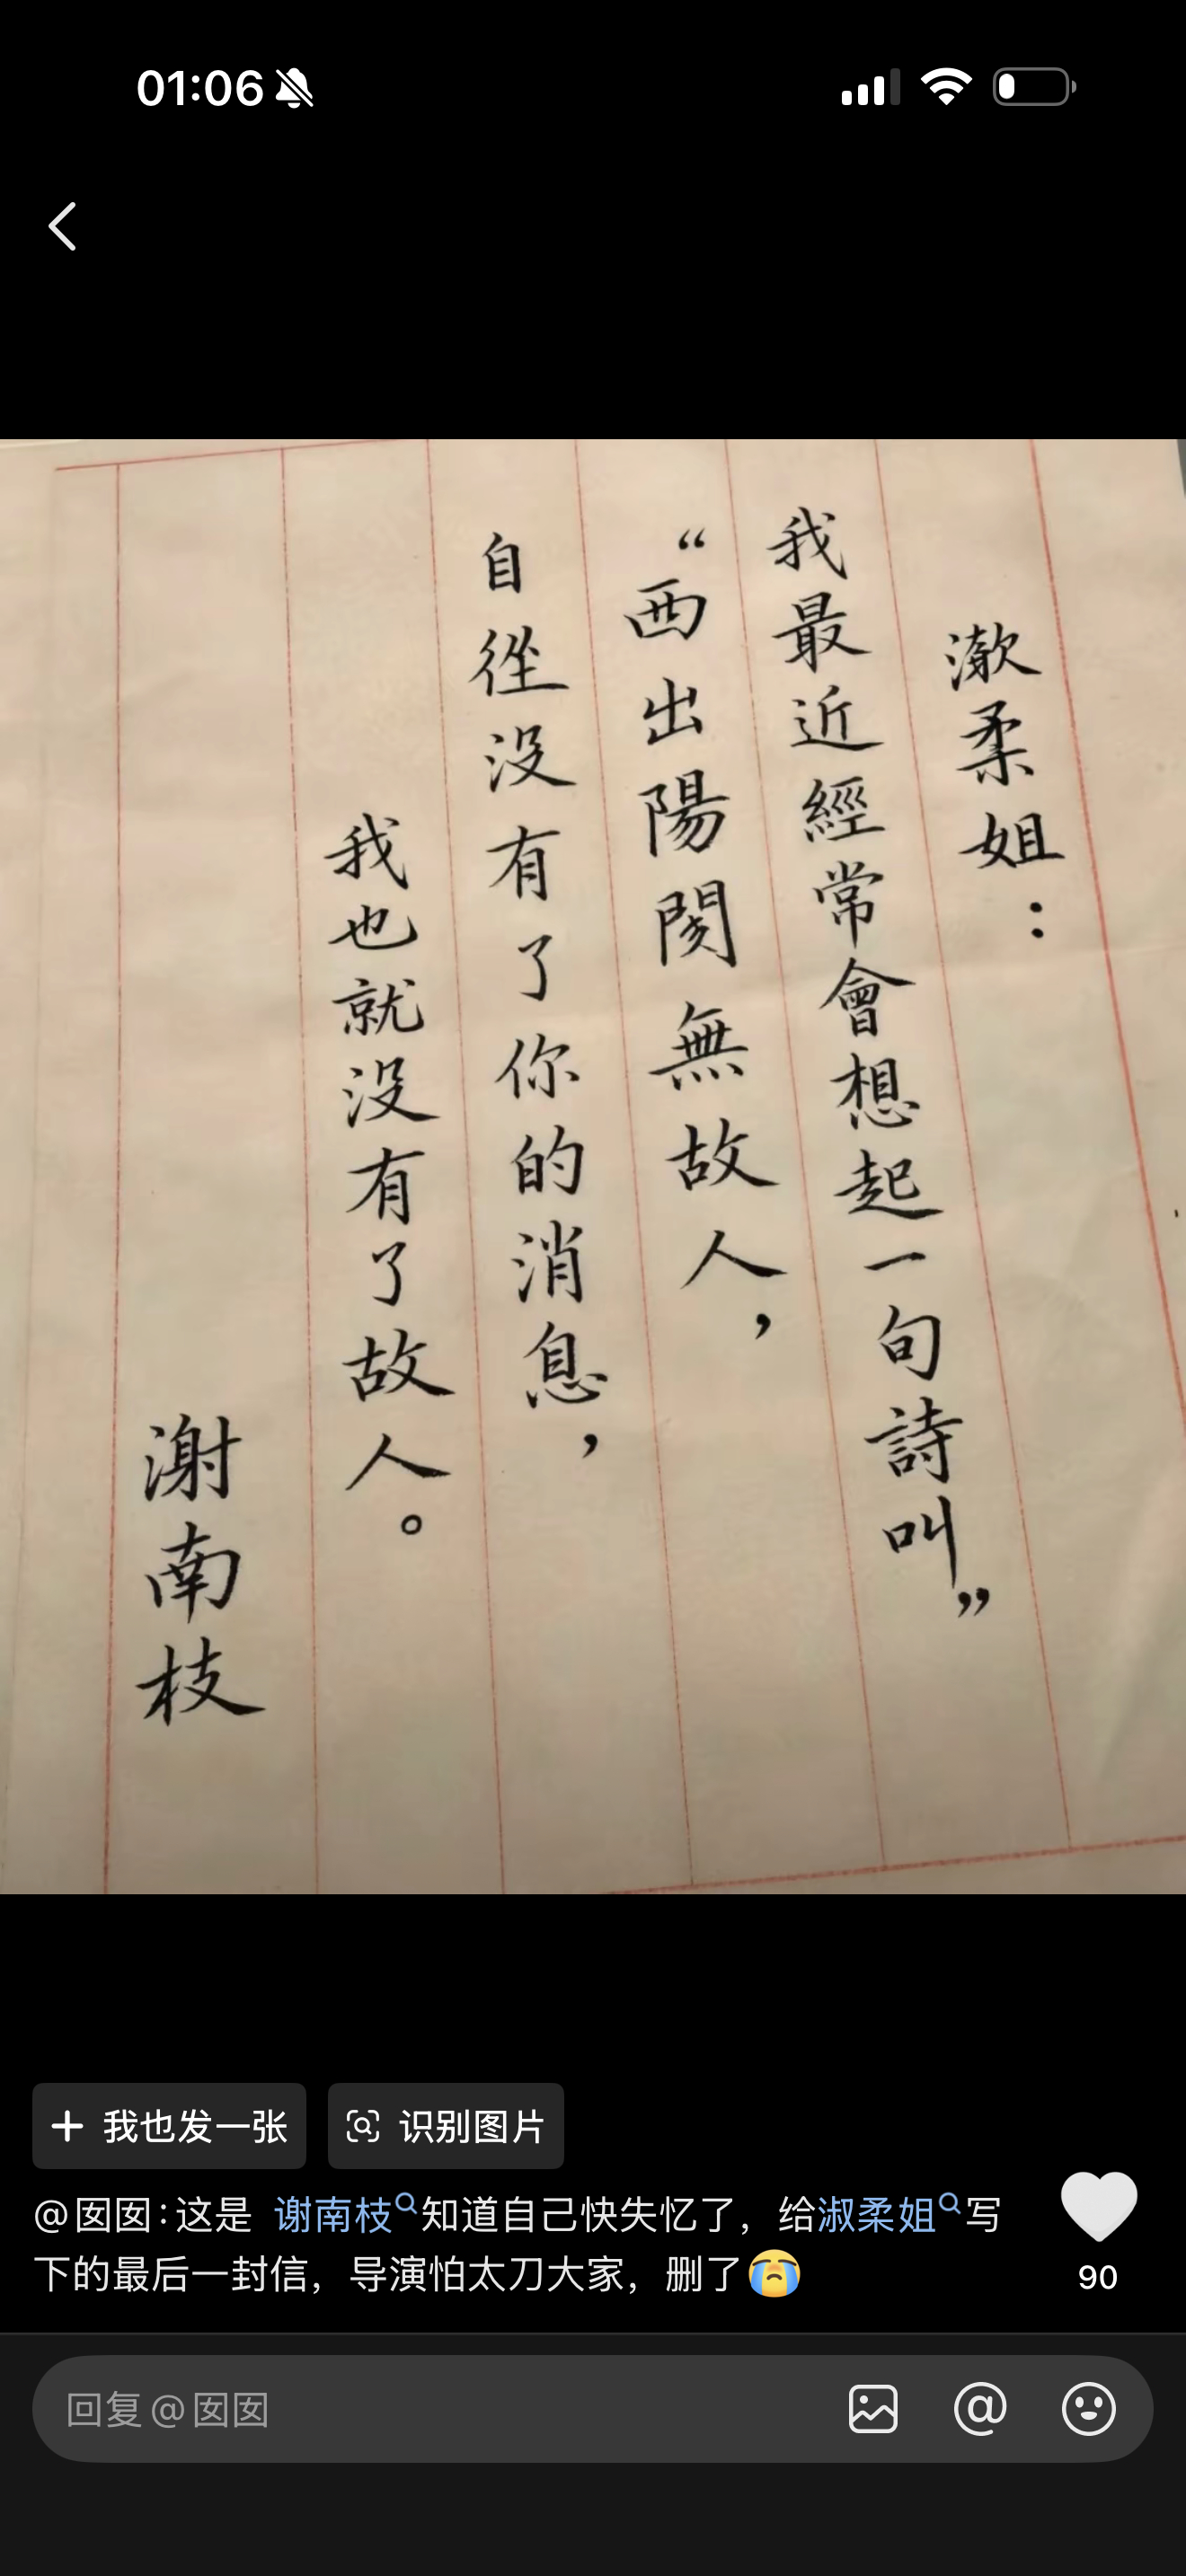 01:06
澉柔姐：
我最近經常會想起一句詩叫”
“西出陽関無故人，
自從没有了你的消息，
我也就没有了故人。
谢南枝
我也发一张
识别图片
@囡囡:这是 谢南枝知道自己快失忆了，给淑柔姐写
下的最后一封信，导演怕太刀大家，删了
90
回复@囡囡